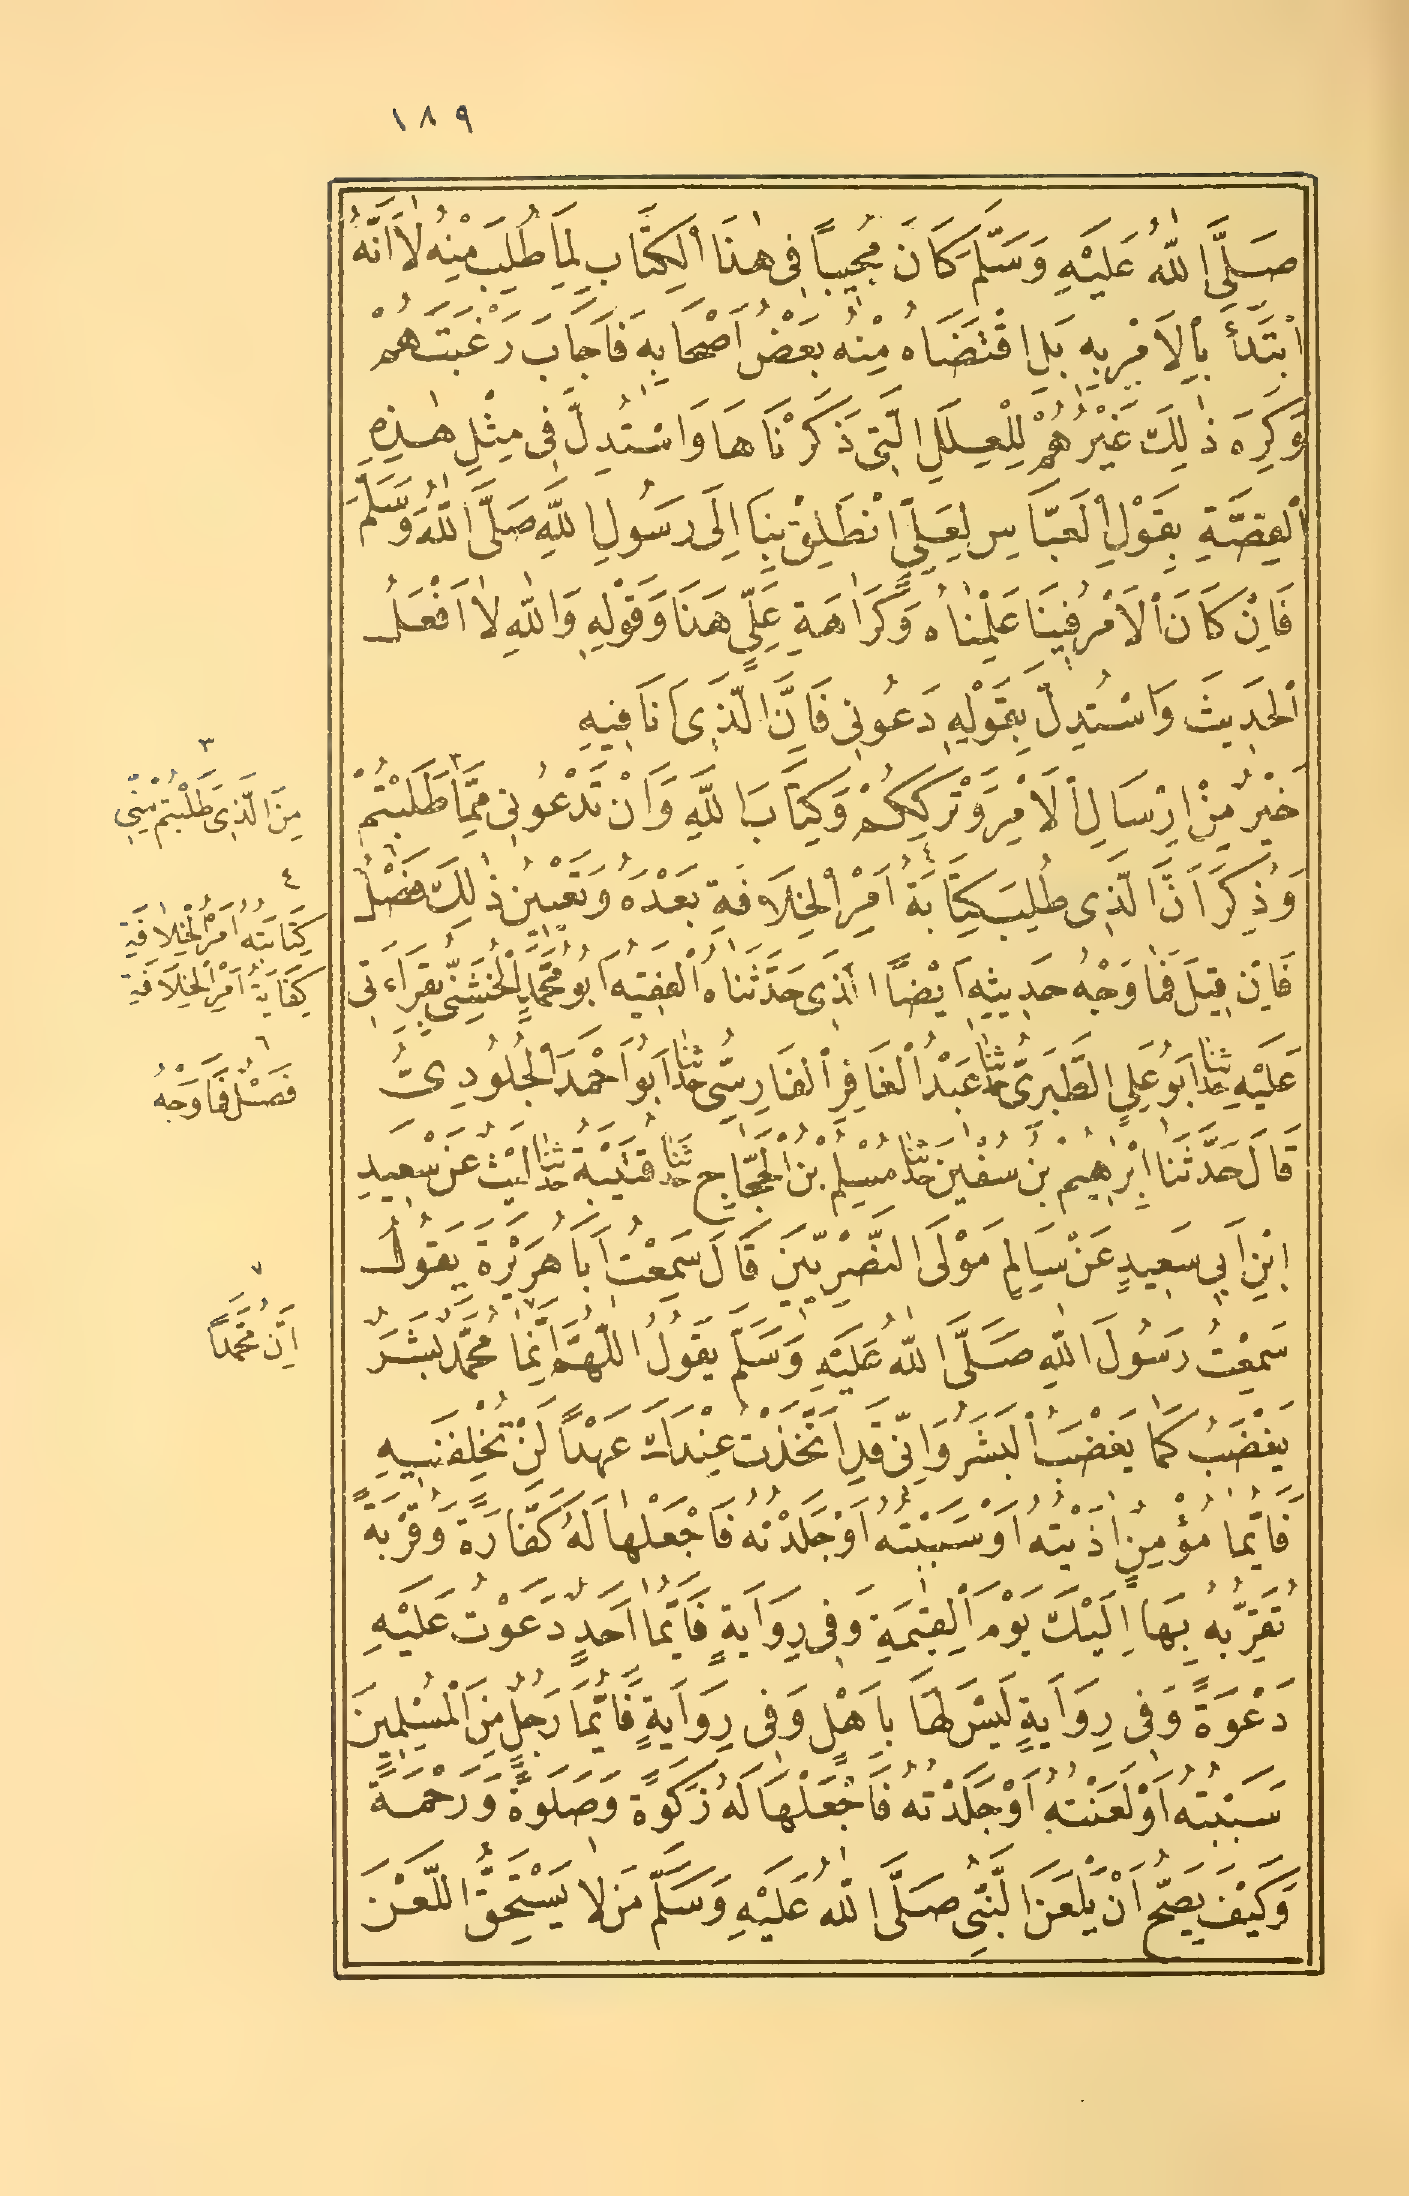 ١٨٩
صَلَّى اللهُ عَلَيْهِ وَسَلَّمَ كَانَ مُجِيبًا فِى هٰذَا الْكِتَابِ لِمَا طُلِبَ مِنْهُ لَا أَنَّهُ
ابْتَدَأَ بِالْأَمْرِ بِهِ بَلِ اقْتَضَاهُ مِنْهُ بَعْضُ أَصْحَابِهِ فَأَجَابَ رَغْبَتَهُمْ
وَكَرِهَ ذٰلِكَ غَيْرُهُمْ لِلْعِلَلِ الَّتِى ذَكَرْنَاهَا وَاسْتُدِلَّ فِى مِثْلِ هٰذِهِ
الْقِصَّةِ بِقَوْلِ الْعَبَّاسِ لِعَلِيٍّ انْطَلِقْ بِنَا إِلَى رَسُولِ اللهِ صَلَّى اللهُ وَسَلَّمَ
فَإِنْ كَانَ الْأَمْرُ فِينَا عَلِمْنَاهُ وَكَرَاهَةِ عَلِيٍّ هَذَا وَقَوْلِهِ وَاللهِ لَا أَفْعَلُ
الْحَدِيثَ وَاسْتُدِلَّ بِقَوْلِهِ دَعُونِى فَإِنَّ الَّذِى أَنَا فِيهِ
خَيْرٌ مِنْ إِرْسَالِ الْأَمْرِ وَتَرْكِكُمْ وَكِتَابَ اللهِ وَأَنْ تَدْعُونِى مِمَّا ٣ طَلَبْتُمْ
وَذُكِرَ أَنَّ الَّذِى طُلِبَ كِتَابَةُ ٤ أَمْرِ الْخِلَافَةِ بَعْدَهُ وَتَعْيِينُ ذٰلِكَ فَصْلٌ ٦
فَإِنْ قِيلَ فَمَا وَجْهُ حَدِيثِهِ أَيْضًا الَّذِى حَدَّثَنَاهُ الْفَقِيهُ أَبُو مُحَمَّدٍ الْخُشَنِىُّ بِقِرَاءَتِى
عَلَيْهِ حدثنا أَبُو عَلِيٍّ الطَّبَرِىُّ حدثنا عَبْدُ الْغَافِرِ الْفَارِسِىُّ حدثنا أَبُو أَحْمَدَ الْجُلُودِىُّ
قَالَ حَدَّثَنَا إِبْرٰهِيمُ بْنُ سُفْيٰنَ حدثنا مُسْلِمُ بْنُ الْحَجَّاجِ حدثنا قُتَيْبَةُ حدثنا لَيْثٌ عَنْ سَعِيدِ
ابْنِ أَبِى سَعِيدٍ عَنْ سَالِمٍ مَوْلَى النَّصْرِيِّينَ قَالَ سَمِعْتُ أَبَا هُرَيْرَةَ يَقُولُ
سَمِعْتُ رَسُولَ اللهِ صَلَّى اللهُ عَلَيْهِ وَسَلَّمَ يَقُولُ اللّٰهُمَّ إِنَّمَا ٧ مُحَمَّدٌ بَشَرٌ
يَغْضَبُ كَمَا يَغْضَبُ الْبَشَرُ وَإِنِّى قَدِ اتَّخَذْتُ عِنْدَكَ عَهْدًا لَنْ تُخْلِفَنِيهِ
فَأَيُّمَا مُؤْمِنٍ آذَيْتُهُ أَوْ سَبَبْتُهُ أَوْ جَلَدْتُهُ فَاجْعَلْهَا لَهُ كَفَّارَةً وَقُرْبَةً
تُقَرِّبُهُ بِهَا إِلَيْكَ يَوْمَ الْقِيٰمَةِ وَفِى رِوَايَةٍ فَأَيُّمَا أَحَدٍ دَعَوْتُ عَلَيْهِ
دَعْوَةً وَفِى رِوَايَةٍ لَيْسَ لَهَا بِأَهْلٍ وَفِى رِوَايَةٍ فَأَيُّمَا رَجُلٍ مِنَ الْمُسْلِمِينَ
سَبَبْتُهُ أَوْ لَعَنْتُهُ أَوْ جَلَدْتُهُ فَاجْعَلْهَا لَهُ زَكٰوةً وَصَلٰوةً وَرَحْمَةً
وَكَيْفَ يَصِحُّ أَنْ يَلْعَنَ النَّبِىُّ صَلَّى اللهُ عَلَيْهِ وَسَلَّمَ مَنْ لَا يَسْتَحِقُّ اللَّعْنَ
٣
مِنَ الَّذِى طَلَبْتُمْ مِنِّى
٤
كِتَابَتَهُ أَمْرَ الْخِلَافَةِ
كِفَايَةُ أَمْرِ الْخِلَافَةِ
٦
فَصْلٌ فَمَا وَجْهُ
٧
إِنَّ مُحَمَّدًا